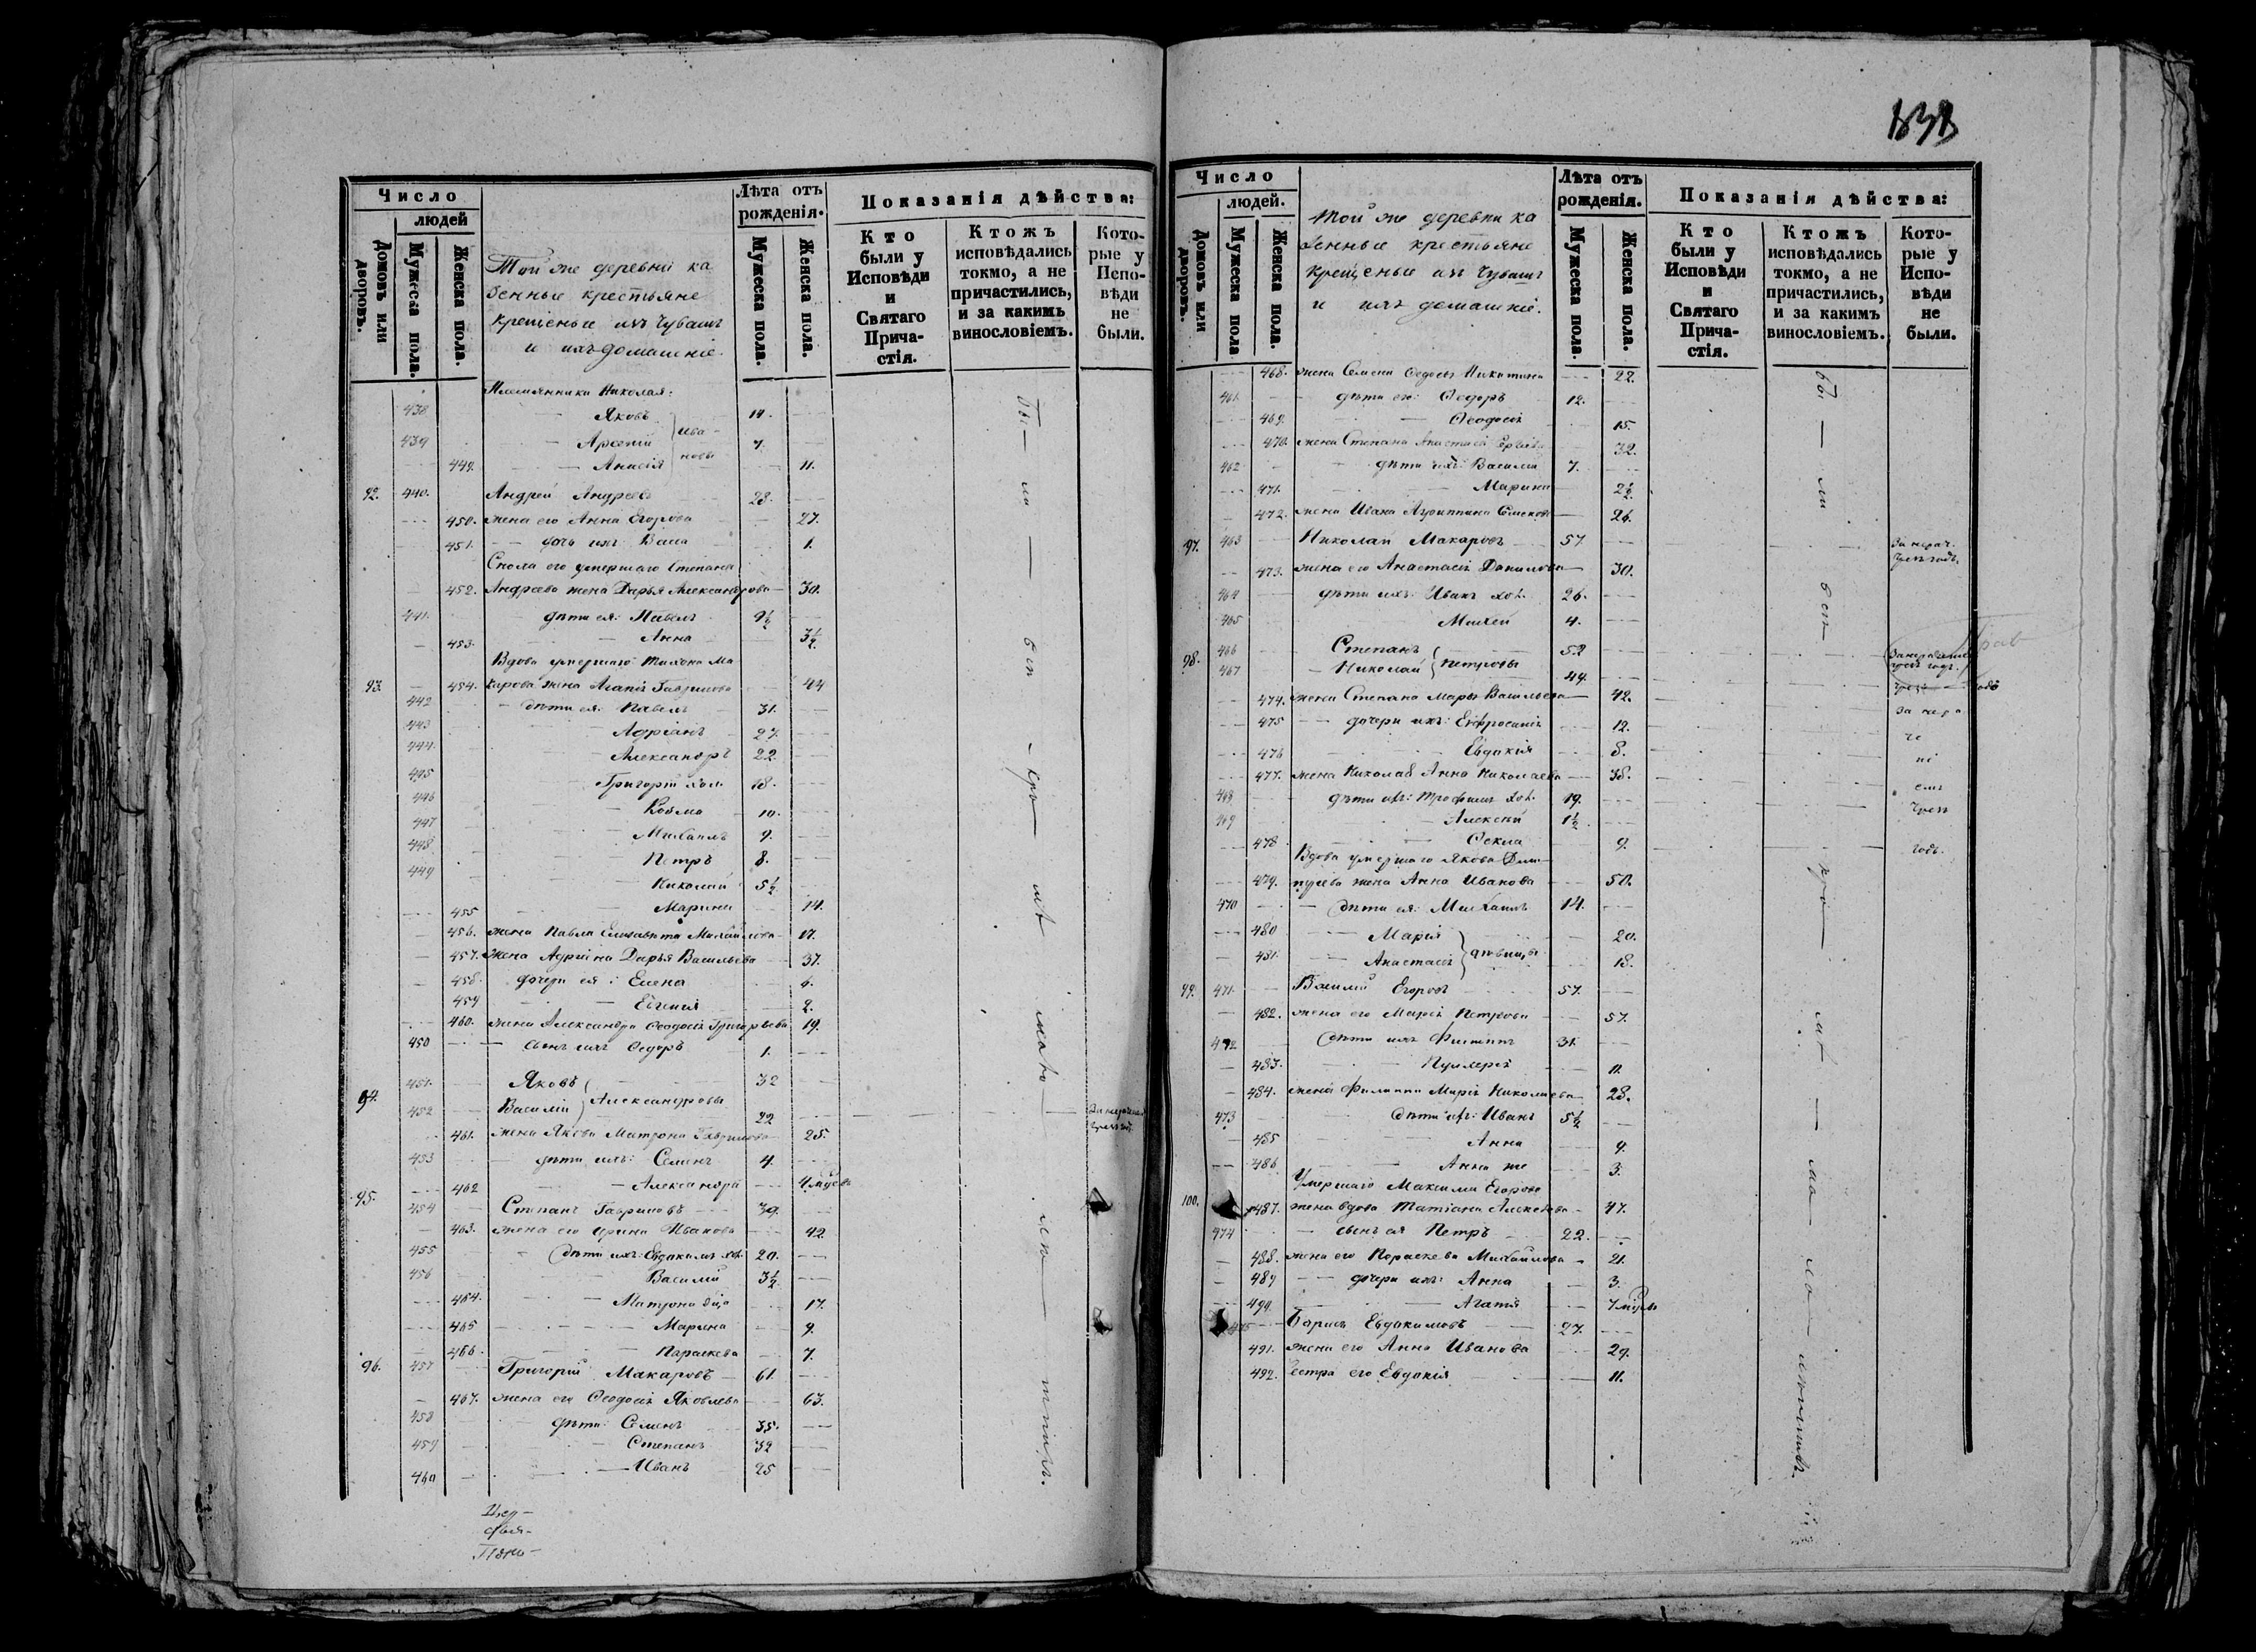 Число
людей
Домовъ или дворовъ.
Мужеска пола.
Женска пола.
Той же деревни ка
зенные крестьяне
крещеные изъ Чувашъ
и ихъ домашніе.
Лѣта отъ рожденія.
Мужеска пола.
Женска пола.
Показанія дѣйства:
Кто были у Исповѣди и Святаго Прича-стія.
Ктожъ исповѣдались токмо, а не причастились, и за какимъ винословіемъ.
Кото-рые у Испо-вѣди не были.
Племянники Николая:
438 Яковъ 14.
439 Арсеній Ива- 7.
449. Анисія новы 11.
92. 440. Андрей Андреевъ 28.
450. жена его Анна Егорова 27.
451. дочь ихъ: Васса 1.
Сноха его умершаго Степана
452. Андреева жена Дарья Александрова 30.
441. дѣти ея: Павелъ 9½
453. Анна 3½
Вдова умершаго Тихона Ма
93. 454. карова жена Агапія Гаврилова 44
442 дѣти ея: Павелъ 31.
443 Адріанъ 27.
444. Александръ 22.
445 Григорій хол. 18.
446 Козма 10.
447 Михаилъ 9.
448 Петръ 8.
449 Николай 5½
455 Марина 14.
456. жена Павла Елизавета Михайлова 17.
457. Жена Адріана Дарья Васильева 37.
458. дочери ея: Елена 6.
459 Евгенія 2.
460. жена Александра Ѳеодосія Григорьева 19.
450 сынъ ихъ Ѳедоръ 1.
94. 451. Яковъ 32
Александровы
452 Василій 22
461. жена Якова Матрона Гаврилова 25.
453 дѣти ихъ: Семенъ 4.
462 Александра
95. 454 Степанъ Гавриловъ 39.
463. жена его Ирина Иванова 42
455 дѣти ихъ: Евдокимъ хол. 20.
456 Василій 3½
464. Матрона дѣца 17.
465 Марина 9.
466. Параскева 7.
96. 457 Григорій Макаровъ 61.
467. жена его Ѳеодосія Яковлева 63.
458 дѣти: Семенъ 35.
459 Степанъ 32
460 Иванъ 25
Число
людей.
Домовъ или дворовъ.
Мужеска пола
Женска пола.
Той же деревни ка
зенные крестьяне
крещеные изъ Чувашъ
и ихъ домашніе.
Лѣта отъ рожденія.
Мужеска пола.
Женска пола.
Показанія дѣйства:
Кто были у Исповѣди и Святаго Прича-стія.
Ктожъ исповѣдались токмо, а не причастились, и за какимъ винословіемъ.
Кото-рые у Испо-вѣди не были.
468. жена Семена Ѳедосья Никитина 22.
461. дѣти его: Ѳедоръ 12.
469. Ѳеодосія 15.
470. жена Степана Анастасія 32.
462 дѣти ихъ: Василій 7.
471. Марина 2½
472. жена Ивана Агриппина 26.
97. 463 Николай Макаровъ 57.
473. жена его Анастасія Данилова 30.
464 дѣти ихъ: Иванъ хол. 26.
465 Михей 4.
98. 466 Степанъ 52
Петровы
467 Николай 44.
474. жена Степана Марья Васильева 42.
475 дочери ихъ: Евфросинія 12.
476 Евдокія 8.
477. жена Николая Анна Николаева 38.
468 дѣти ихъ: Трофимъ хол. 19.
469 Алексѣй 1½
478 Ѳекла 9.
Вдова умершаго Якова Дми
479. тріева жена Анна Иванова 50.
470 дѣти ея: Михаилъ 14.
480 Марія 20.
дѣвицы
481. Анастасія 18.
99. 471. Василій Егоровъ 57.
482. жена его Марія Петрова 57.
472 дѣти ихъ Филиппъ 31.
483. Пулхерія 11.
484. жена Филиппа Марія Николаева 28.
473 дѣти ихъ: Иванъ 5½
485 Анна 9.
486 Анна же 3.
Умершаго Максима Егорова
100. 487. жена вдова Татіана Алексѣева 47.
474 сынъ ея Петръ 22.
488. жена его Параскева Михайлова 21.
489 дочери ихъ: Анна 3.
490. Агапія
475 Борисъ Евдокимовъ 27.
491. жена его Анна Иванова 29.
492. сестра его Евдокія 11.